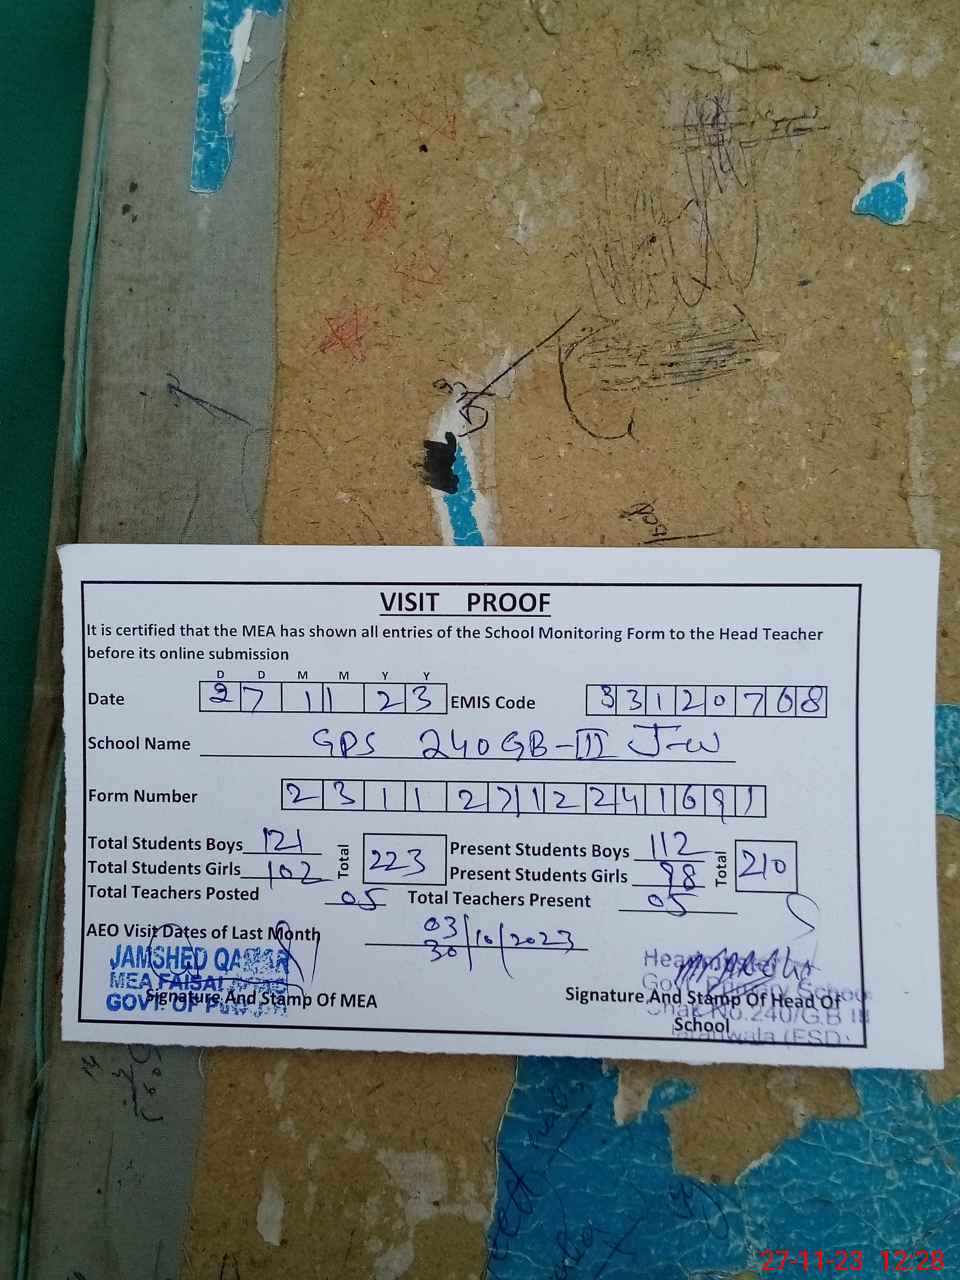 VISIT PROOF
It is certified that the MEA has shown all entries of the School Monitoring Form to the Head Teacher
before its online submission
D D M M Y Y
Date 27 11 23 EMIS Code 33120768
School Name GPS 240 GB-III J-W
Form Number 23112712241691
Total Students Boys 121 Total 223 Present Students Boys 112 Total 210
Total Students Girls 102 Present Students Girls 98
Total Teachers Posted 05 Total Teachers Present 05
AEO Visit Dates of Last Month 03/30/10/2023
JAMSHED QAMAR
MEA FAISALABAD
GOVT. OF PUNJAB
Signature And Stamp Of MEA
Head
Govt. Primary School
Chak No.240/G.B III
Jaranwala (FSD)
Signature And Stamp Of Head Of
School
27-11-23 12:28